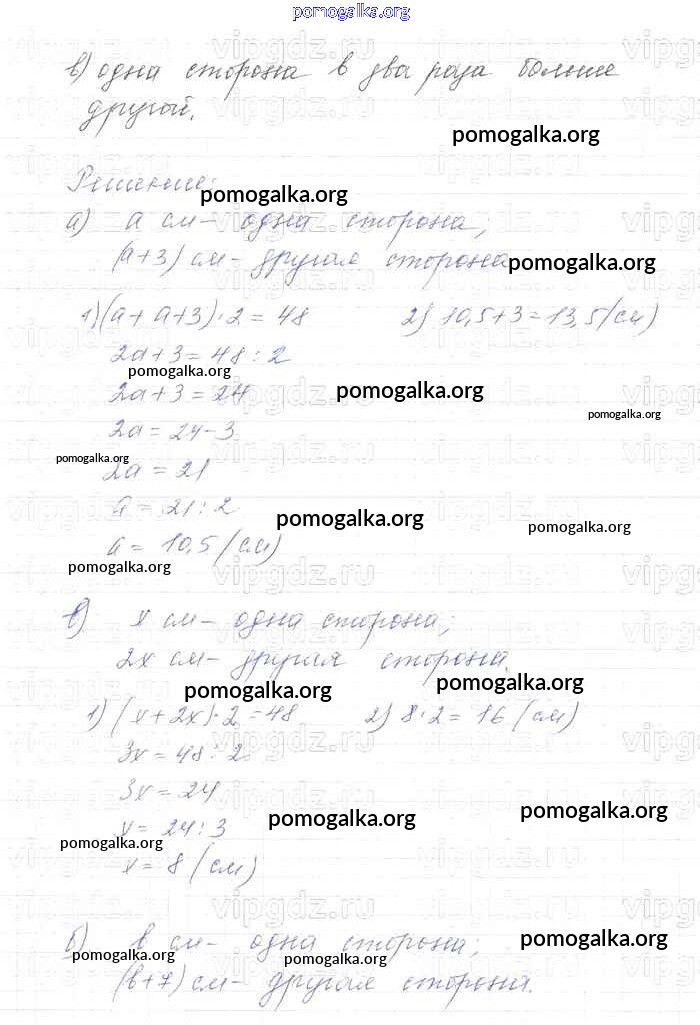 pomogalka.org
в) одна сторона в два раза больше
другой.
pomogalka.org
Решение:
pomogalka.org
а) а см - одна сторона,
(а+3) см - другая сторона
pomogalka.org
1) (а + а+3)·2 = 48 2) 10,5+3=13,5 (см)
2а+3 = 48 : 2
pomogalka.org
2а+3 = 24
pomogalka.org
pomogalka.org
2а = 24-3
pomogalka.org
2а = 21
а = 21 : 2
pomogalka.org
pomogalka.org
а = 10,5 (см)
pomogalka.org
vipgdz.ru
в) х см - одна сторона;
2х см - другая сторона.
pomogalka.org
pomogalka.org
1) (х + 2х)·2 = 48 2) 8·2 = 16 (см)
3х = 48 : 2
3х = 24
pomogalka.org
pomogalka.org
х = 24 : 3
pomogalka.org
х = 8 (см)
vipgdz.ru
б) в см - одна сторона;
pomogalka.org
pomogalka.org
pomogalka.org
(в+7) см - другая сторона.